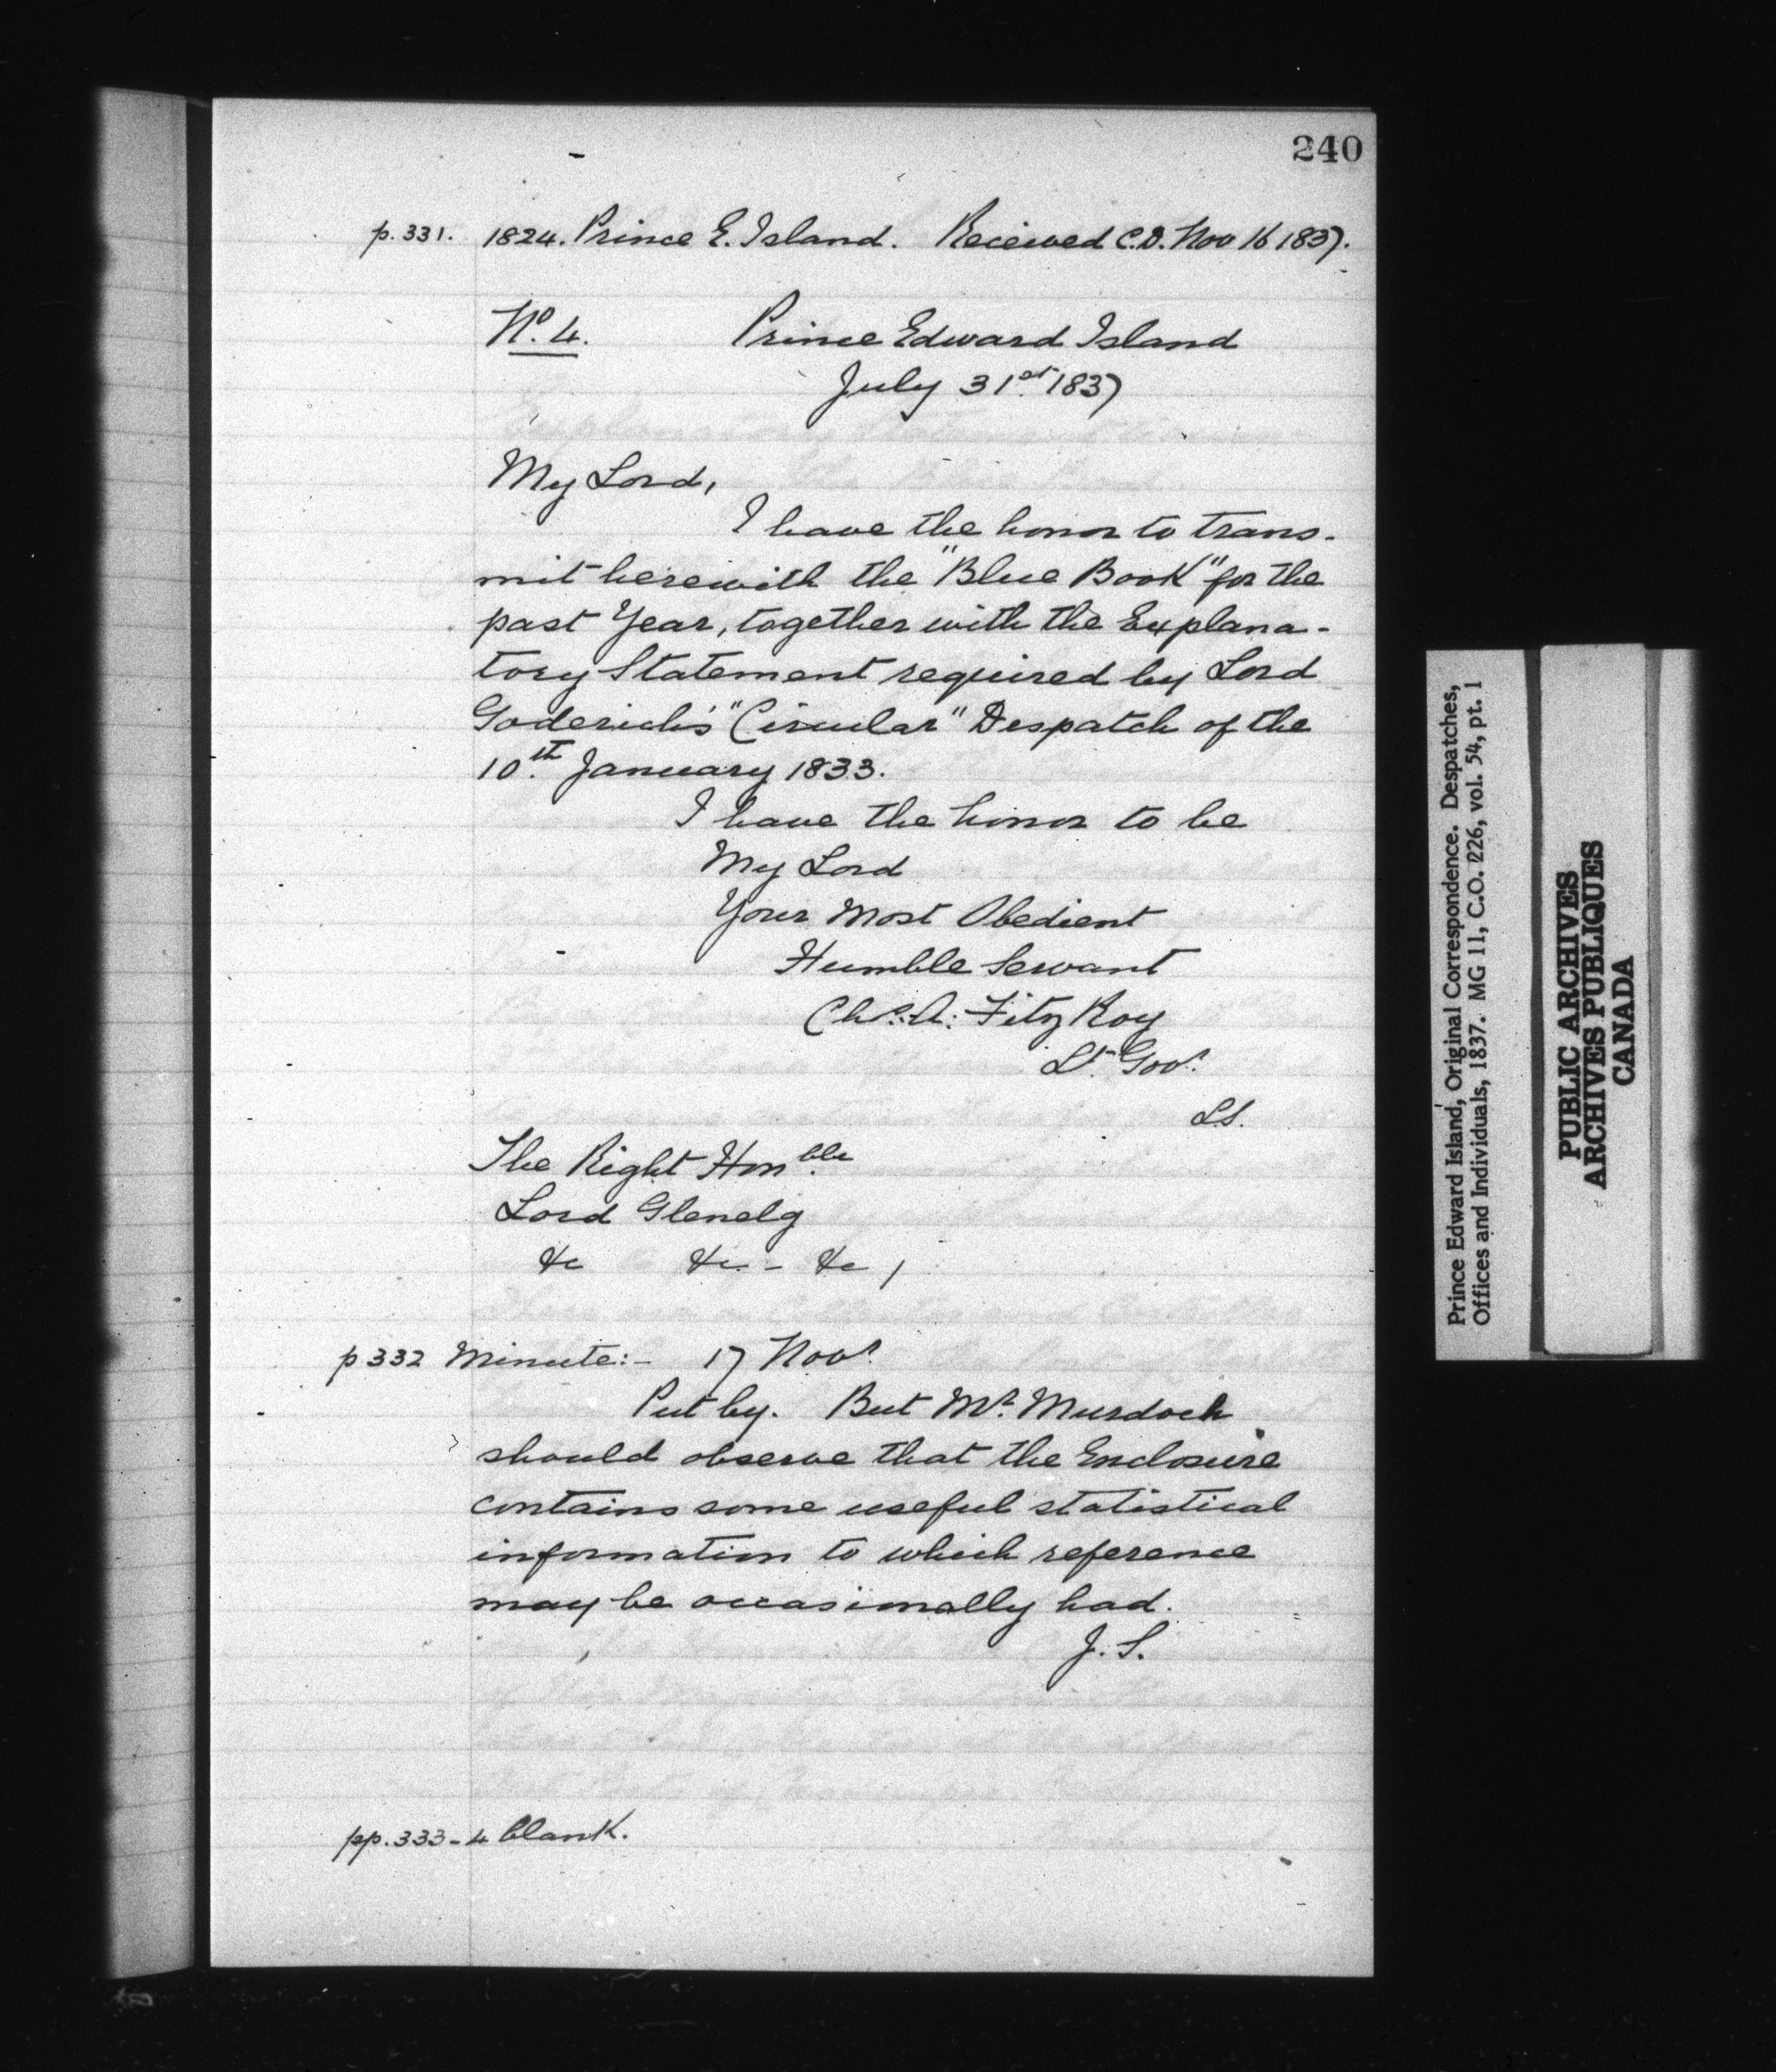 240
p.331. 1824. Prince E. Island. Received C.D. Nov 16 1837.
No. 4. Prince Edward Island
July 31st. 1837
My Lord,
I have the honor to trans-
mit herewith the "Blue Book" for the
past Year, together with the Explana-
tory Statement required by Lord
Goderich's "Circular" Despatch of the
10th. January 1833.
I have the honor to be
My Lord
Your Most Obedient
Humble Servant
Chs. A: FitzRoy
Lt. Govr.
The Right Honble.
Lord Glenelg
&c &c - &c /
p 332 Minute:- 17 Novr.
Put by. But Mr. Murdoch
should observe that the Enclosure
contains some useful statistical
information to which reference
may be occasionally had.
J. S.
pp. 333-4 blank.
Prince Edward Island, Original Correspondence. Despatches,
Offices and Individuals, 1837. MG 11, C.O. 226, vol. 54, pt. 1
PUBLIC ARCHIVES
ARCHIVES PUBLIQUES
CANADA